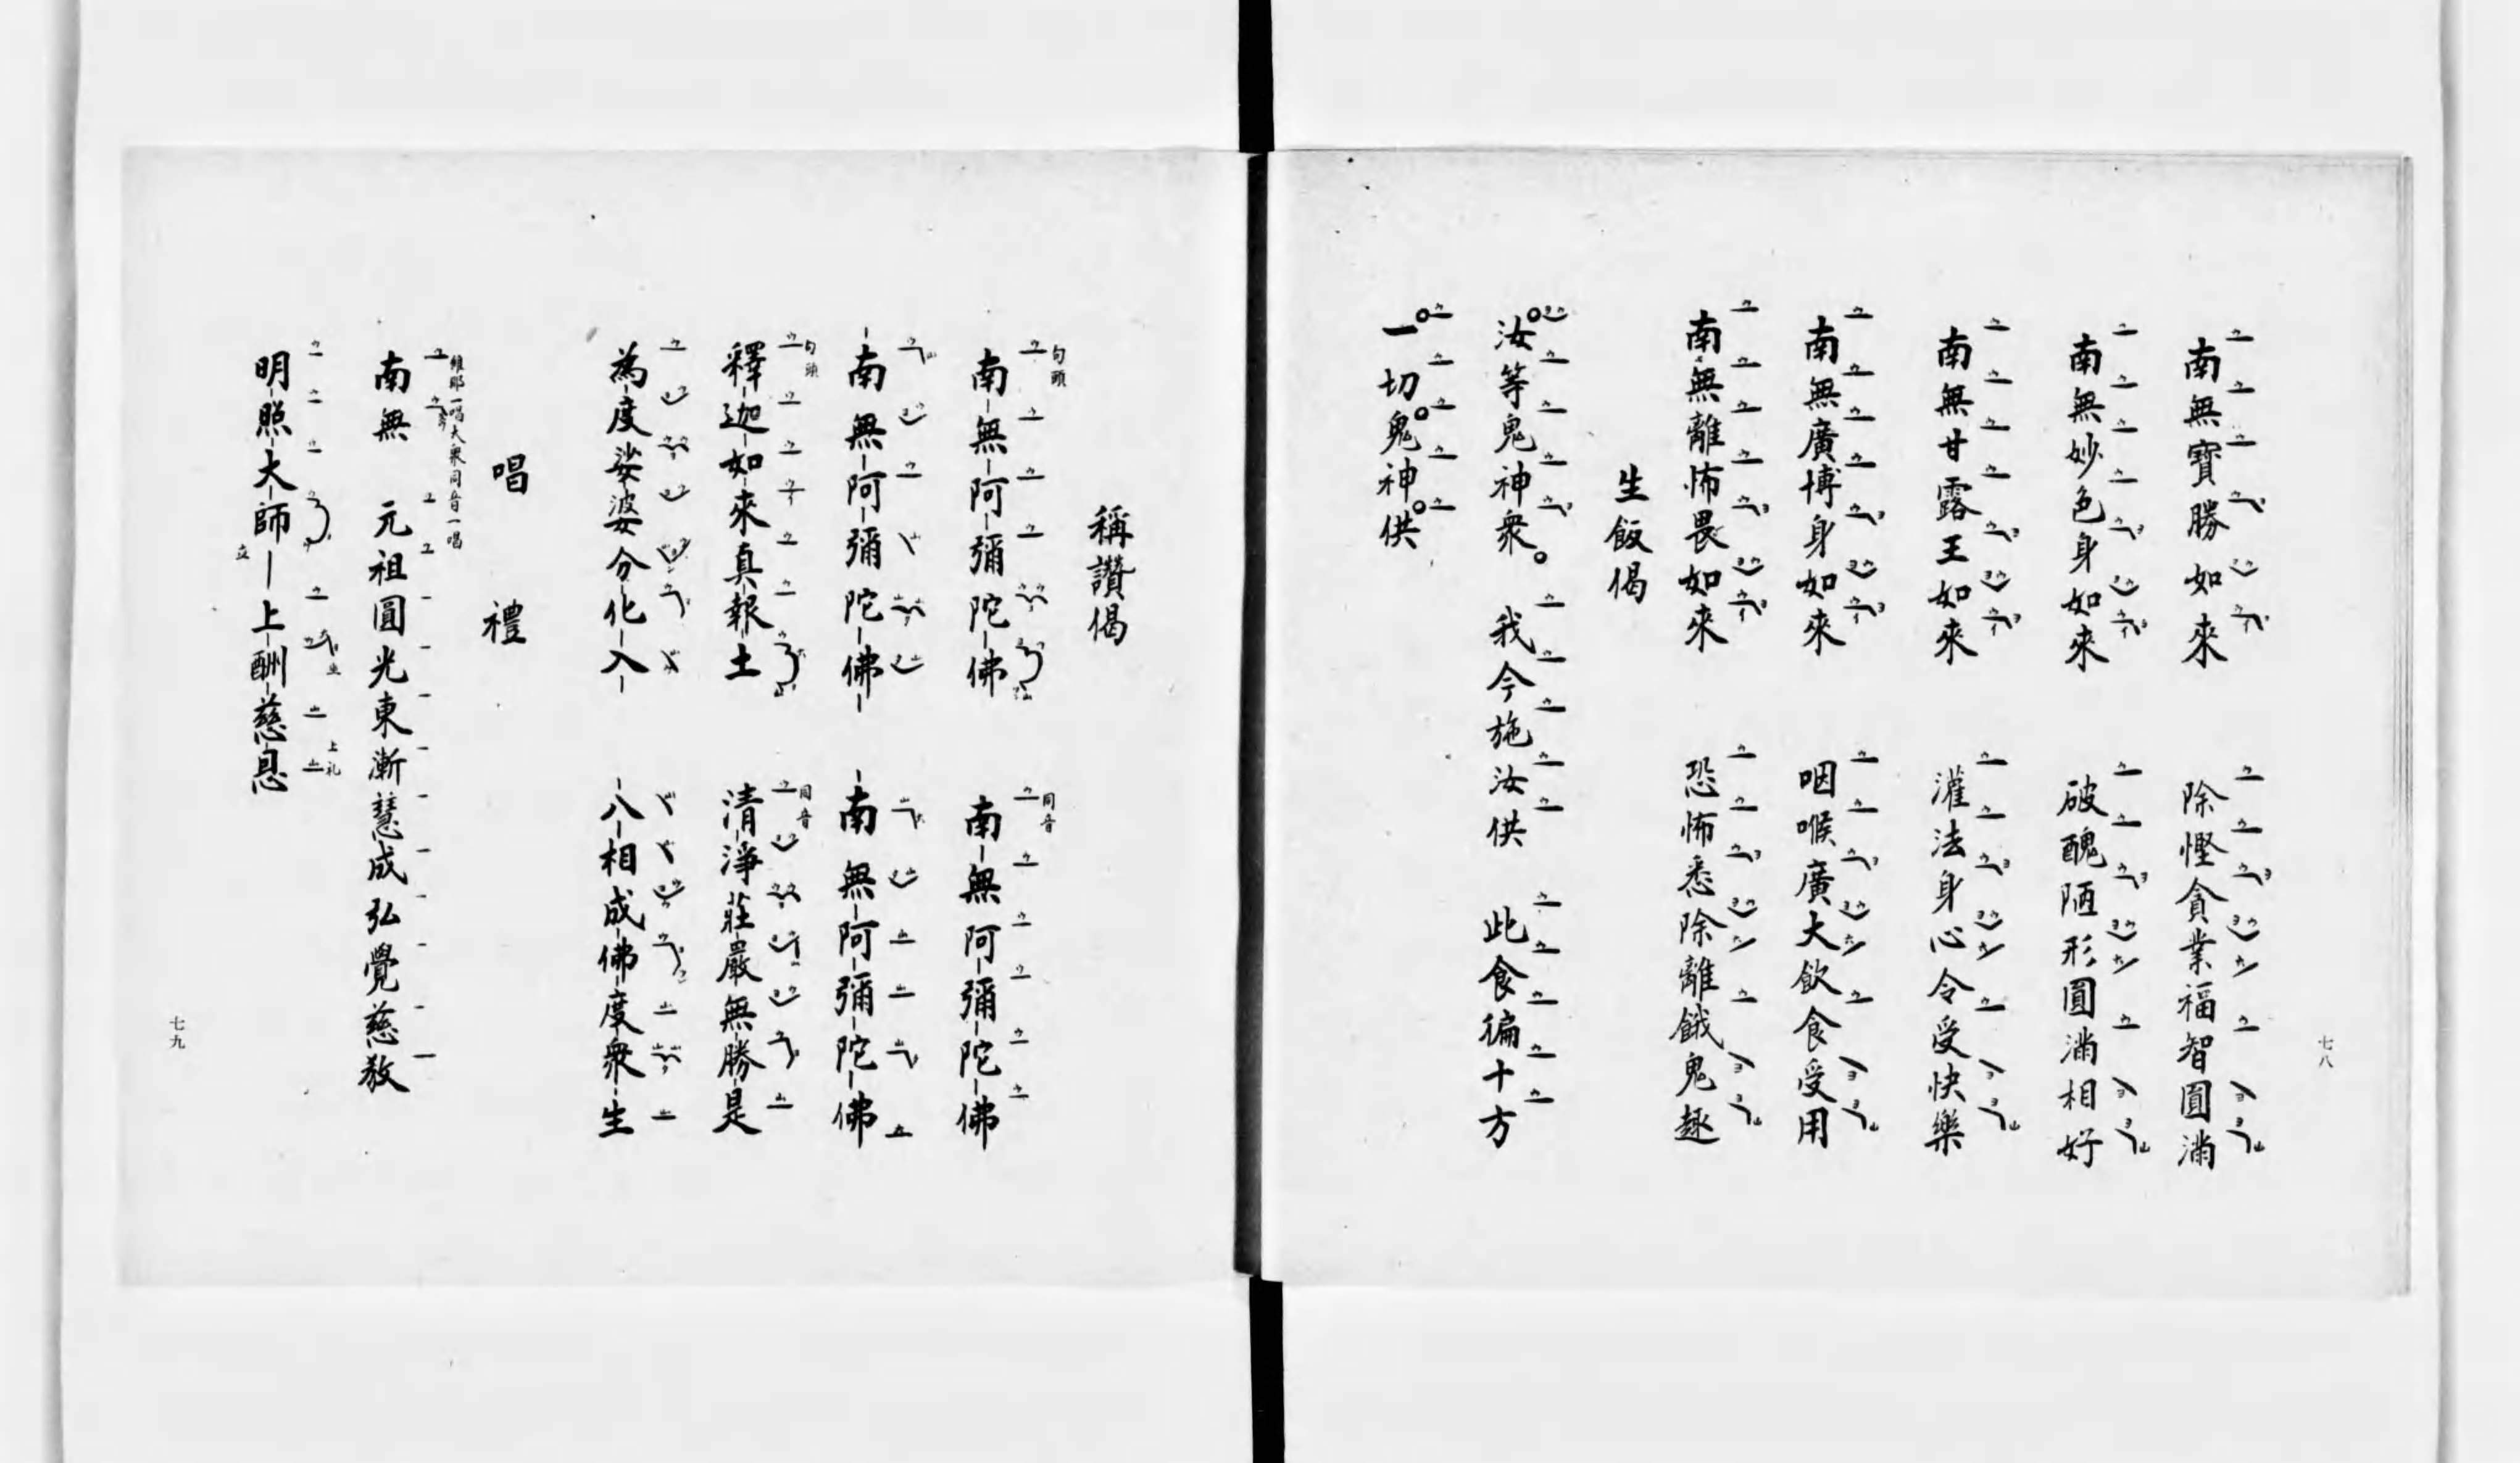 南無寶勝如來　除慳貪業福智圓滿
南無妙色身如來　破醜陋形圓滿相好
南無甘露王如來　灌法身心令受快樂
南無廣博身如來　咽喉廣大飲食受用
南無離怖畏如來　恐怖悉除離餓鬼趣
生飯偈
汝等鬼神衆。　我今施汝供　此食徧十方
一切鬼神供
七八
稱讚偈
句頭
南無阿彌陀佛　南無阿彌陀佛
同音
南無阿彌陀佛　南無阿彌陀佛
句頭
釋迦如來真報土　清淨莊嚴無勝是
同音
為度娑婆分化入　八相成佛度衆生
唱禮
維那一唱大衆同音一唱
南無　元祖圓光東漸慧成弘覺慈教
明照大師上酬慈恩
立
上礼
七九